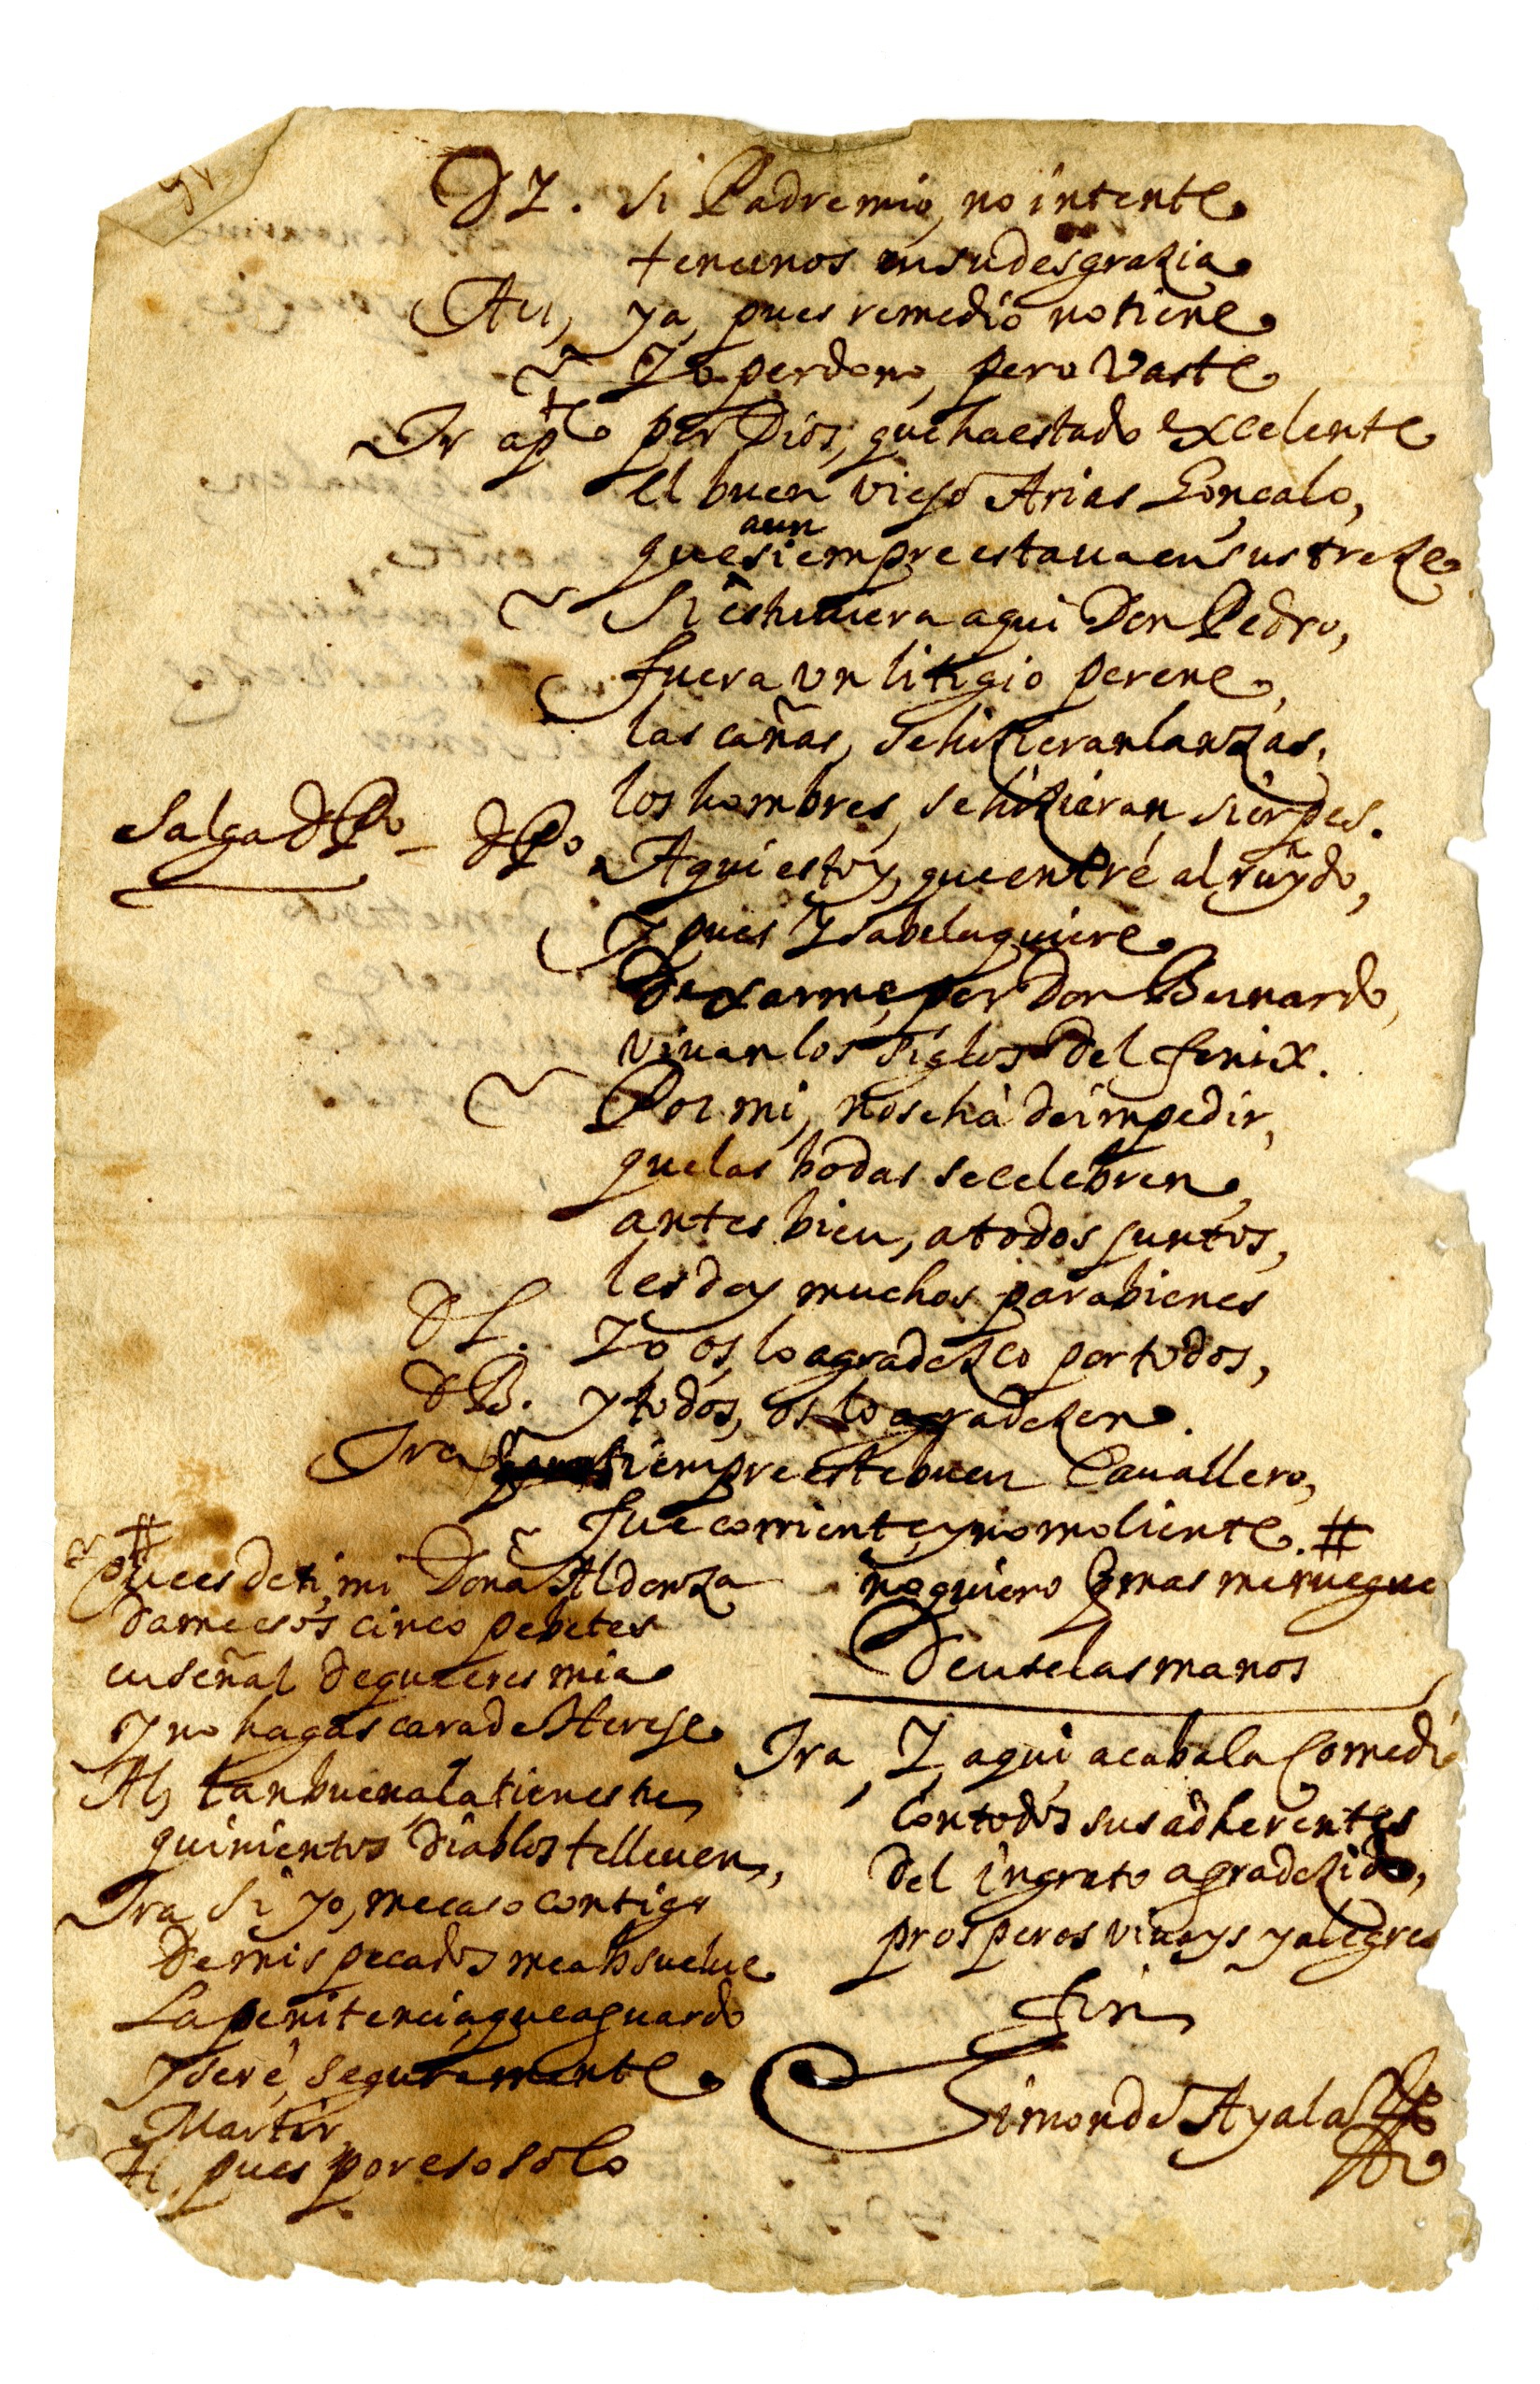 DY. si Padre mio, no intente
tenernos en su desgrazia
Au, ya, pues remedio no tiene
Yo perdono, pero vaste
Tr apte por Dios, que ha estado excelente
el buen viejo Arias Gonçalo,
aun
que siempre estaua en sus treze
Si estuuiera aqui Don Pedro,
fuera vn litigio perene,
las cañas, se hizieran lanzas,
los hombres, se hizieran sierpes.
Salga DPo – DPo. Aqui estoy, que entré al ruydo,
Y pues Ysabela quiere
Dexarme, por Don Bernardo,
viuan los siglos del fenix.
Por mi, no se há de impedir,
que las bodas se celebren,
antes bien, a todos juntos,
les doy muchos parabienes
DL. Yo, os, lo agradezco por todos,
DB. y todos, os lo agradezen.
Tra siempre este buen Cauallero,
fue corriente, y no moliente. #
#
Pues de ti, mi Doña Aldonza
Dame esos cinco pebetes
en señal de que eres mia
Y no hagas cara de Hereje
Al, tan buena la tienes he,
quinientos diablos te lleuen,
Tra, Si yo, me caso contigo
De mis pecados me absuelue
La penitencia que aguardo
Y seré, seguramente
Martir
Al, pues por eso solo
no quiero q mas me ruegue
Dense las manos
Tra, Y, aqui, acaba la Comedia
Con todos sus adherentes
Del ingrato agradezido,
prosperos viuays y alegres
Fin
Simon de Ayala